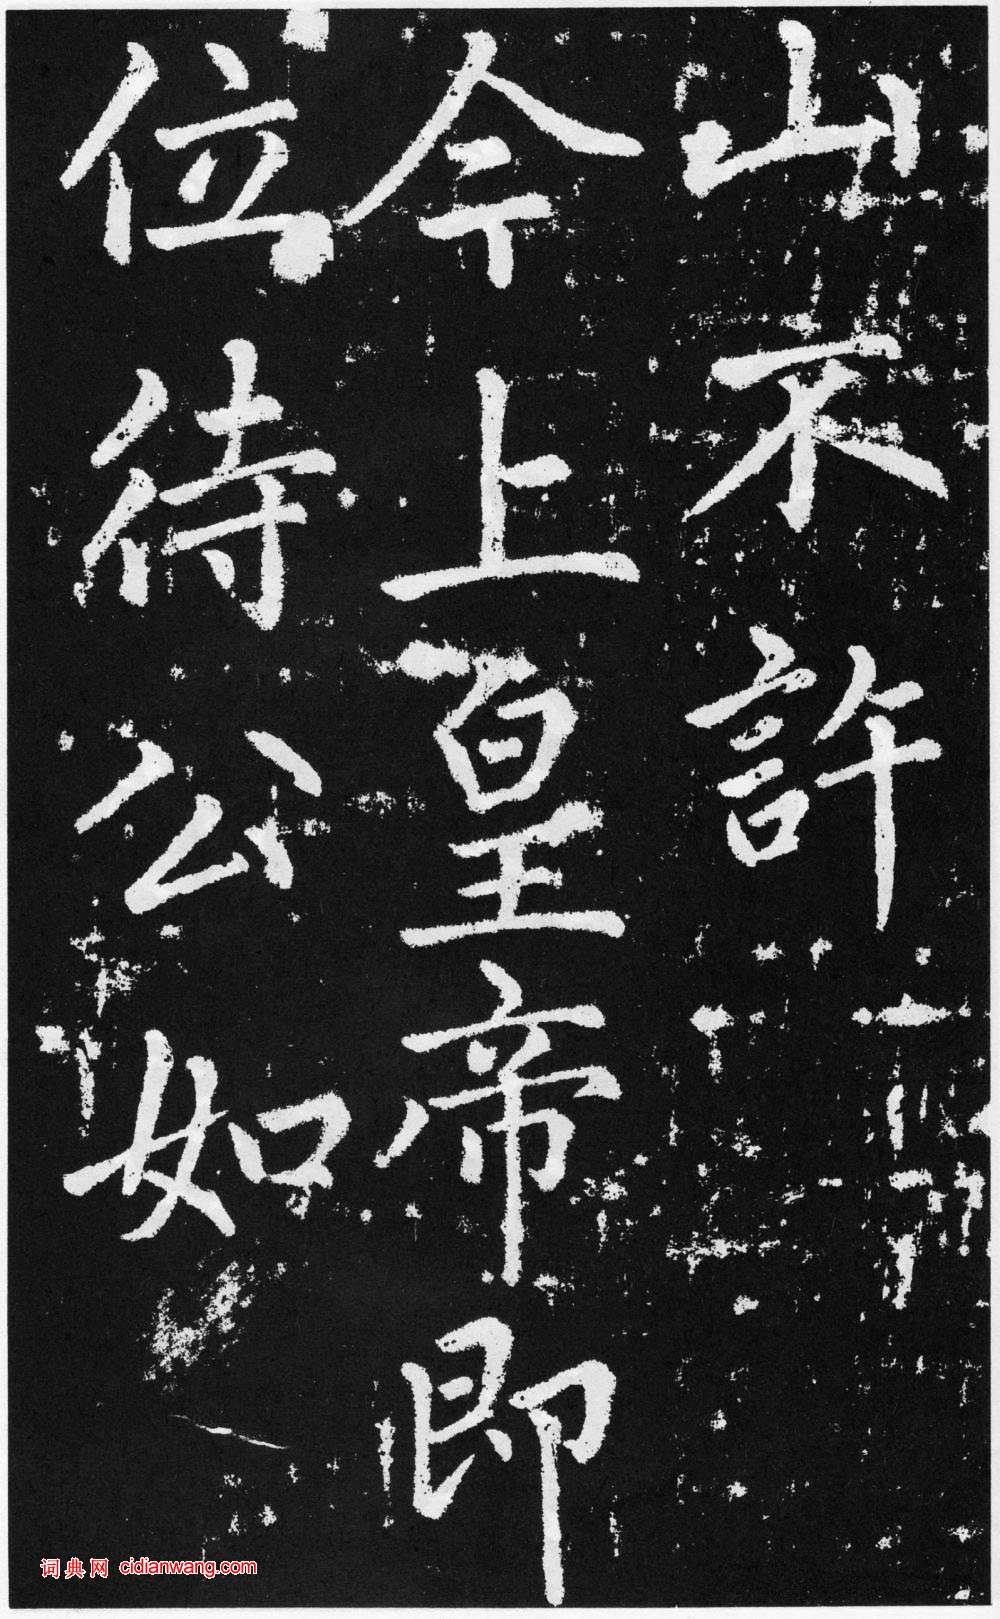 山不許
今上皇帝即
位待公如
词典网 cidianwang.com